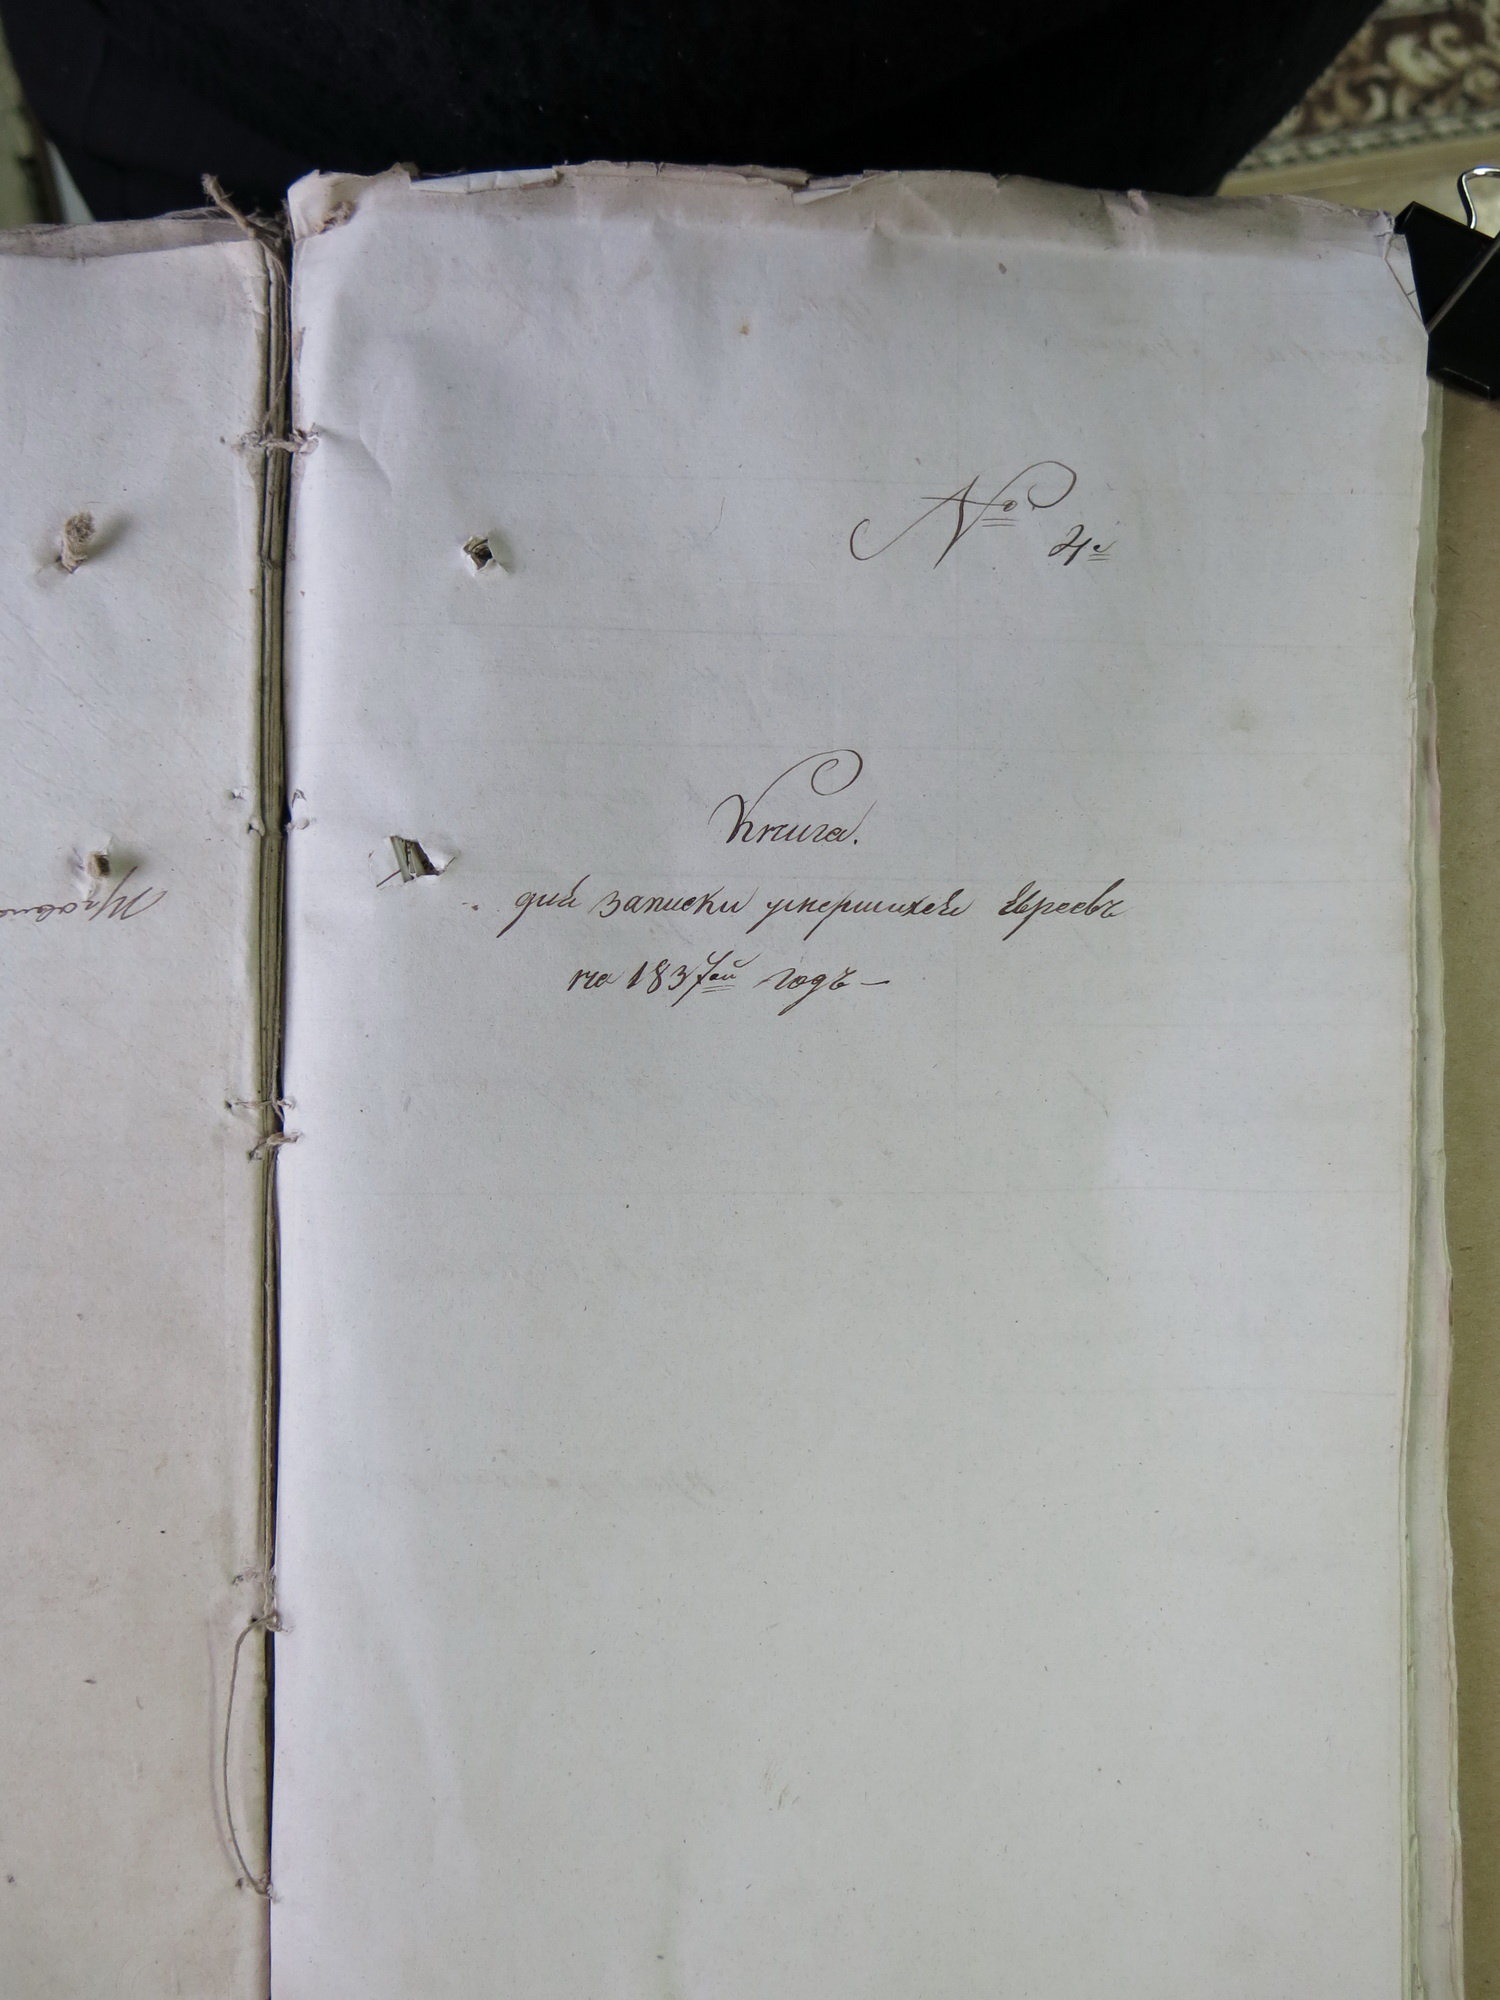 № 4й
Книга.
для записки умершихъ Евреевъ
на 1837ой годъ —